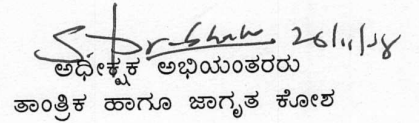 26/11/18
ಅಧೀಕ್ಷಕ ಅಭಿಯಂತರರು
ತಾಂತ್ರಿಕ ಹಾಗೂ ಜಾಗೃತ ಕೋಶ